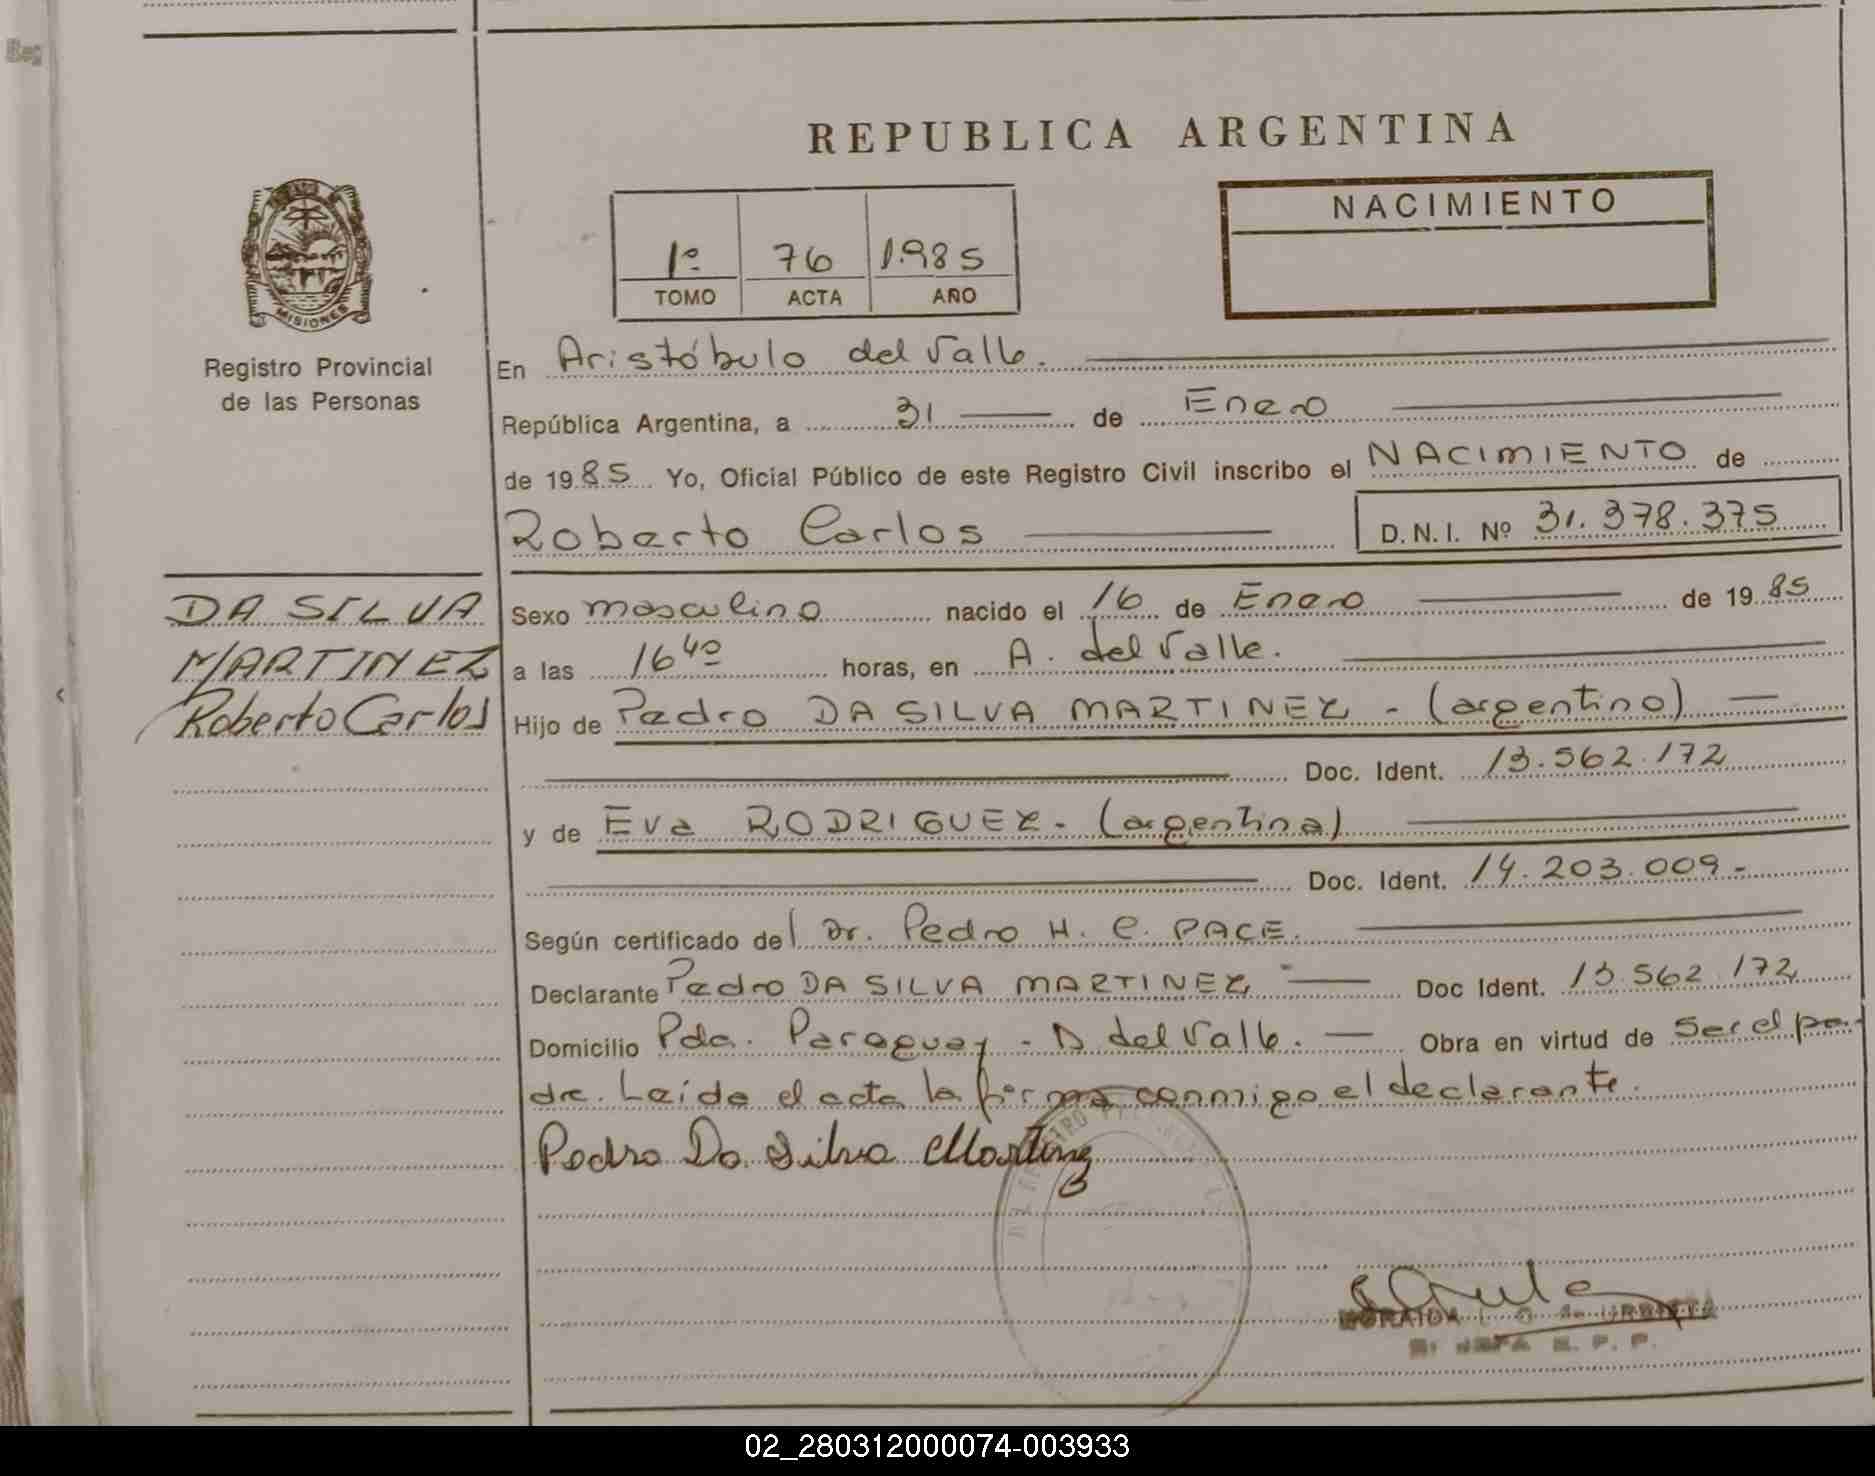 REPUBLICA ARGENTINA
NACIMIENTO
1º 76 1.985
TOMO ACTA AÑO
MISIONES
Registro Provincial
de las Personas
DA SILVA
MARTINEZ
Roberto Carlos
En Aristóbulo del Valle.
República Argentina, a 31 de Enero
de 1985 Yo, Oficial Público de este Registro Civil inscribo el NACIMIENTO de
Roberto Carlos D.N.I. Nº 31.378.375
Sexo masculino nacido el 16 de Enero de 1985
a las 16 40 horas, en A. del Valle.
Hijo de Pedro DA SILVA MARTINEZ - (argentino)
Doc. Ident. 13.562.172
y de Eva RODRIGUEZ - (argentina)
Doc. Ident. 14.203.009-
Según certificado del Dr. Pedro H. C. PACE.
Declarante Pedro DA SILVA MARTINEZ Doc Ident. 13.562.172
Domicilio Pda. Paraguay - A del Valle. Obra en virtud de ser el pa-
dre. Leída el acta la firma conmigo el declarante.
Pedro Da Silva Martinez
02_280312000074-003933